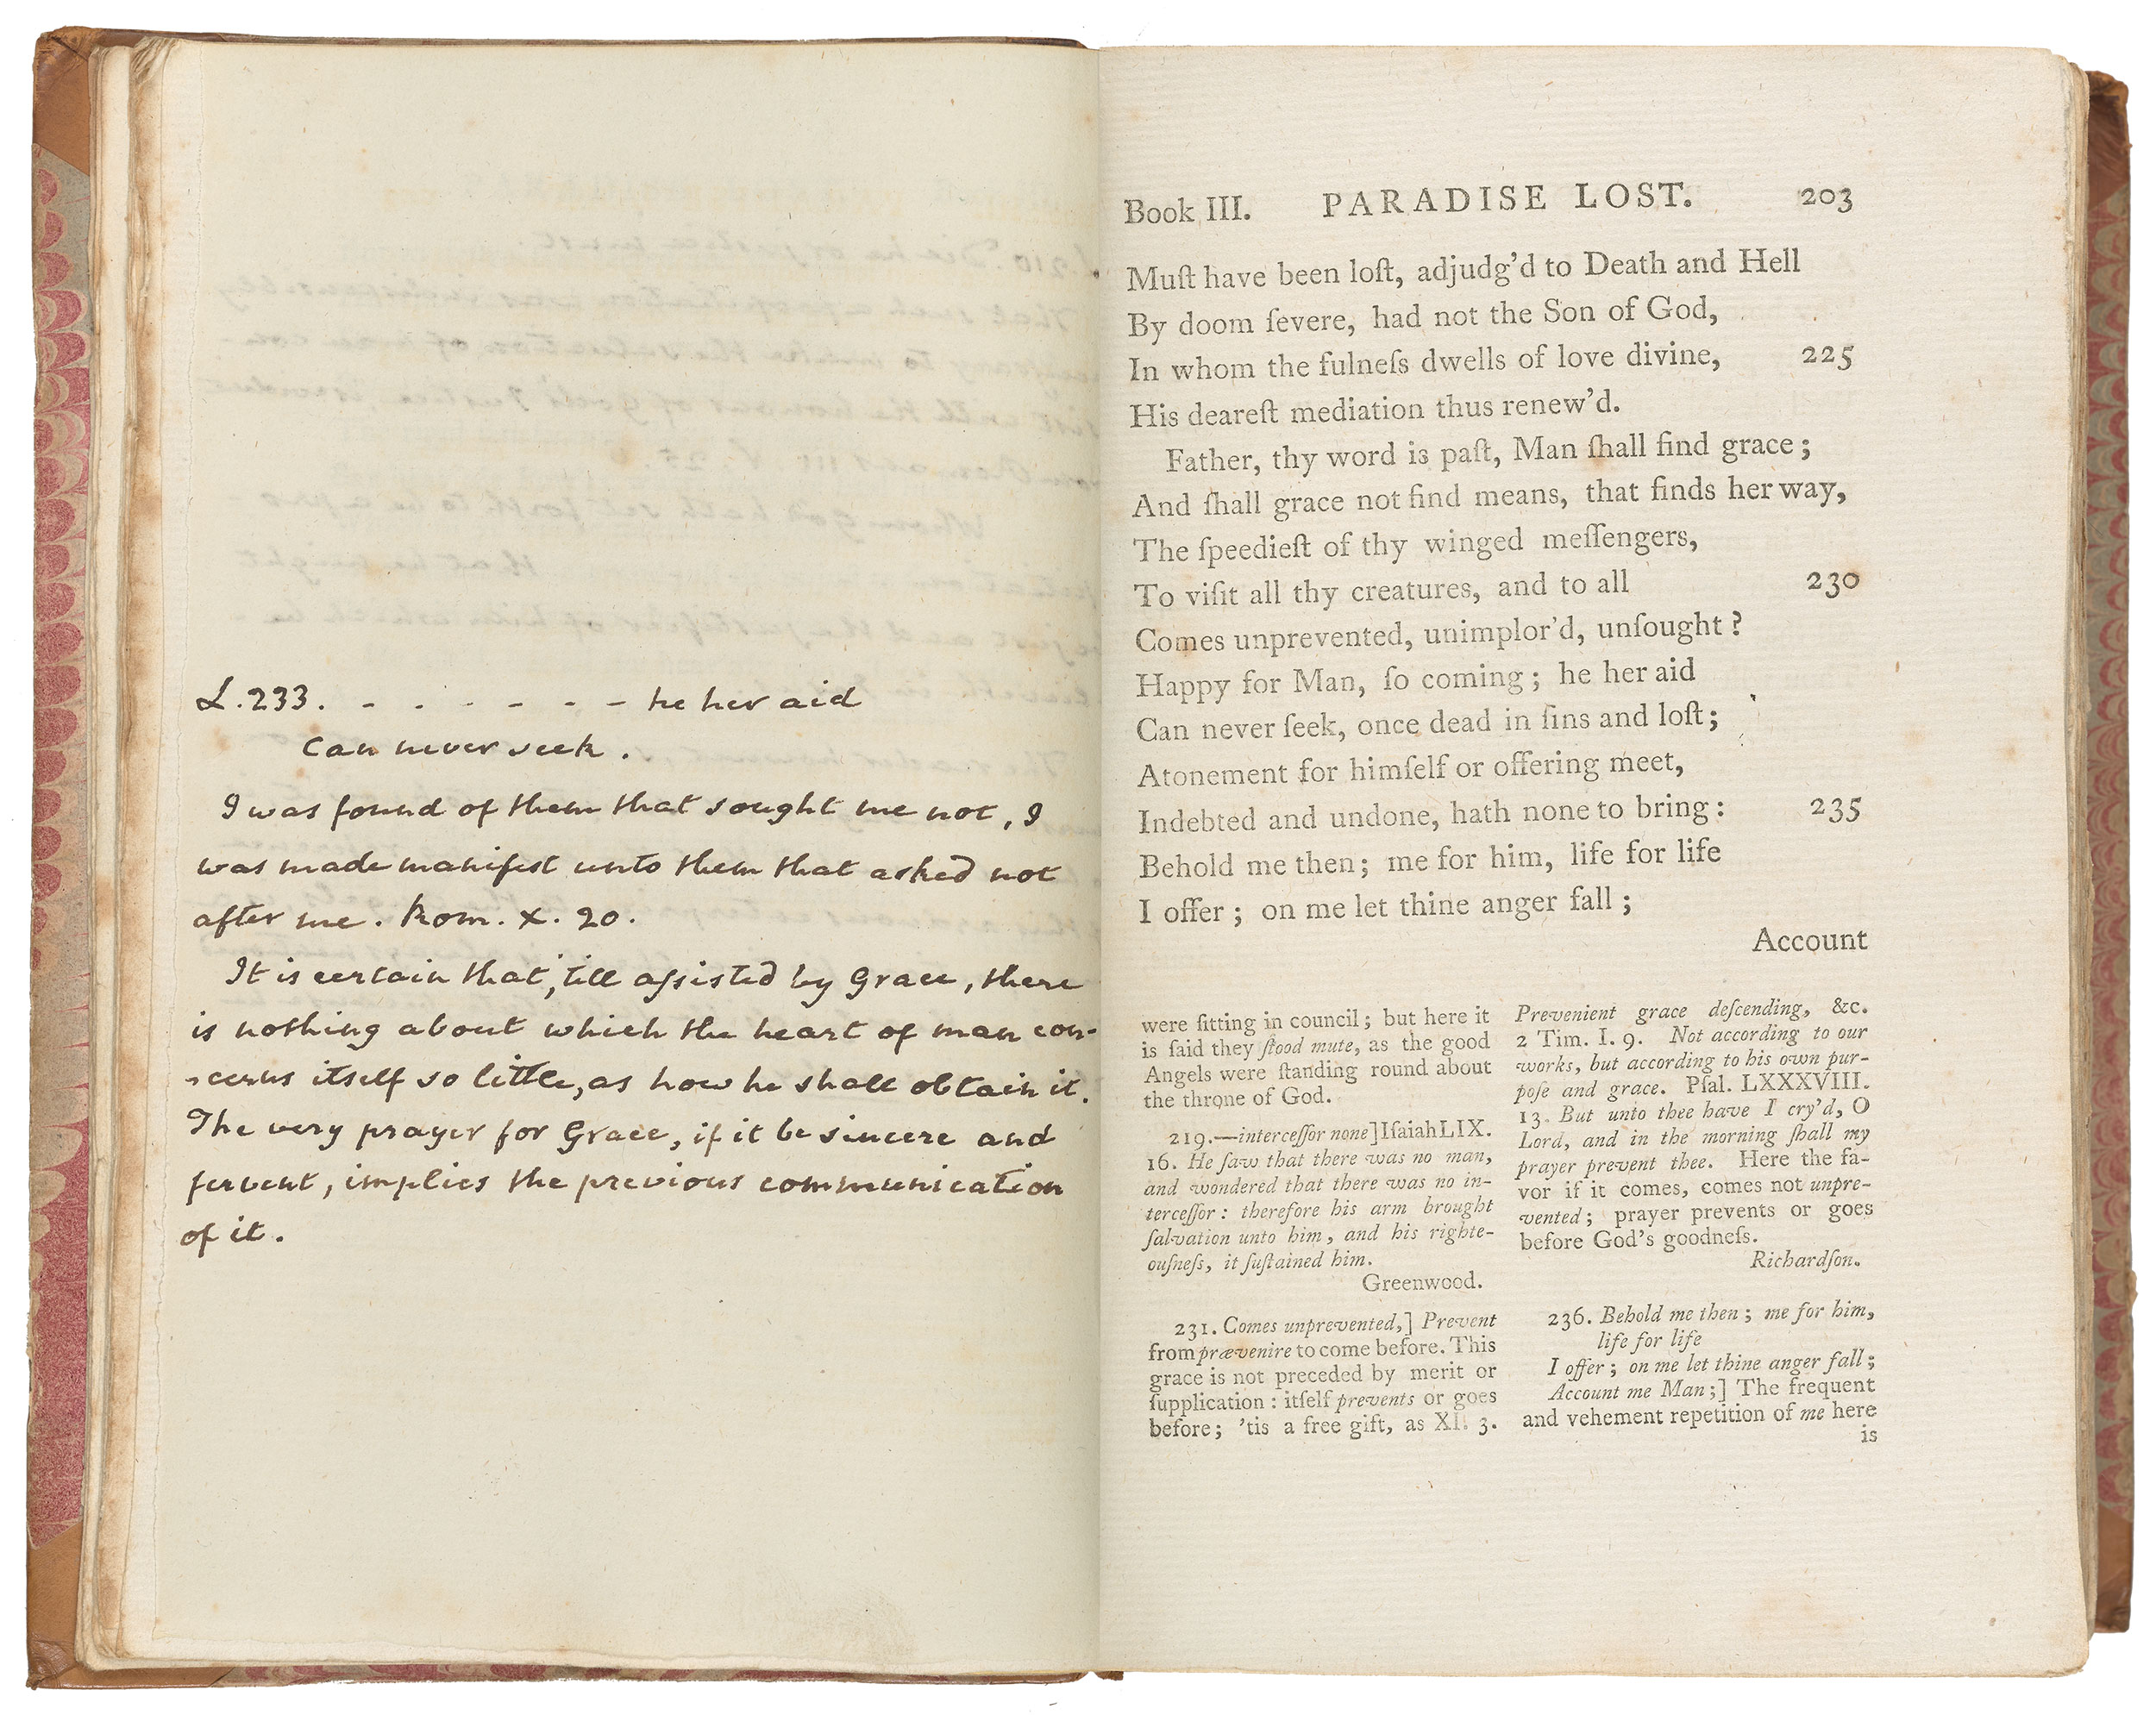 L. 233. - - - - - - he her aid
can never seek.
I was found of them that sought me not, I
was made manifest unto them that asked not
after me. Rom. X. 20.
It is certain that, 'till aſsisted by Grace, there
is nothing about which the heart of man con-
-cerns itself so little, as how he shall obtain it.
The very prayer for Grace, if it be sincere and
fervent, implies the previous communication
of it.
Book III. PARADISE LOST. 203
Muſt have been loſt, adjudg'd to Death and Hell
By doom ſevere, had not the Son of God,
In whom the fulneſs dwells of love divine, 225
His deareſt mediation thus renew'd.
Father, thy word is paſt, Man ſhall find grace;
And ſhall grace not find means, that finds her way,
The ſpeedieſt of thy winged meſſengers,
To viſit all thy creatures, and to all 230
Comes unprevented, unimplor'd, unſought?
Happy for Man, ſo coming; he her aid
Can never ſeek, once dead in ſins and loſt;
Atonement for himſelf or offering meet,
Indebted and undone, hath none to bring: 235
Behold me then; me for him, life for life
I offer; on me let thine anger fall;
Account
were ſitting in council; but here it
is ſaid they ſtood mute, as the good
Angels were ſtanding round about
the throne of God.
219.—interceſſor none] Iſaiah LIX.
16. He ſaw that there was no man,
and wondered that there was no in-
terceſſor: therefore his arm brought
ſalvation unto him, and his righte-
ouſneſs, it ſuſtained him.
Greenwood.
231. Comes unprevented,] Prevent
from prævenire to come before. This
grace is not preceded by merit or
ſupplication: itſelf prevents or goes
before; 'tis a free gift, as XI. 3.
Prevenient grace deſcending, &c.
2 Tim. I. 9. Not according to our
works, but according to his own pur-
poſe and grace. Pſal. LXXXVIII.
13. But unto thee have I cry'd, O
Lord, and in the morning ſhall my
prayer prevent thee. Here the fa-
vor if it comes, comes not unpre-
vented; prayer prevents or goes
before God's goodneſs.
Richardſon.
236. Behold me then; me for him,
life for life
I offer; on me let thine anger fall;
Account me Man;] The frequent
and vehement repetition of me here
is